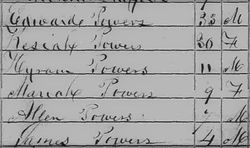 Edward Powers 33 M
Kesiah Powers 30 F
Hyram Powers 11 M
Mariah Powers 9 F
Allen Powers 7 M
James Powers 4 M